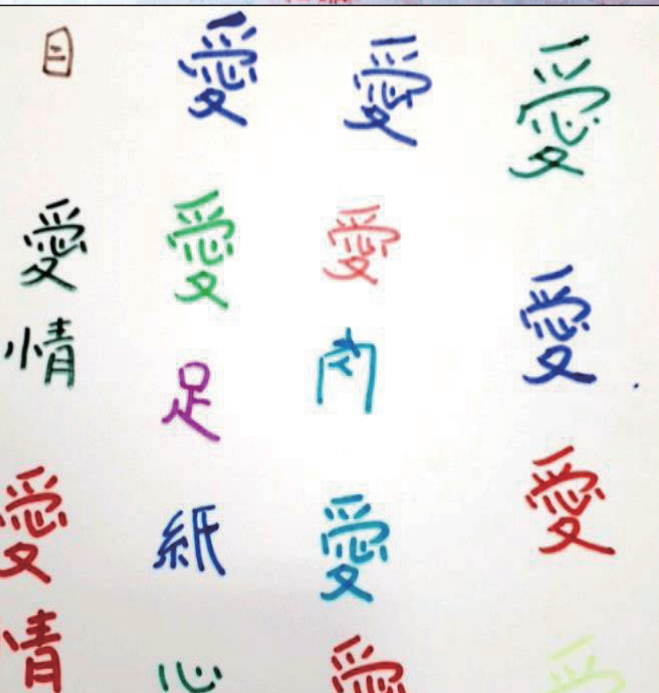 目 愛 愛 愛
愛 愛 愛 愛
情 足 肉
愛 紙 愛 愛
情 心 愛 愛